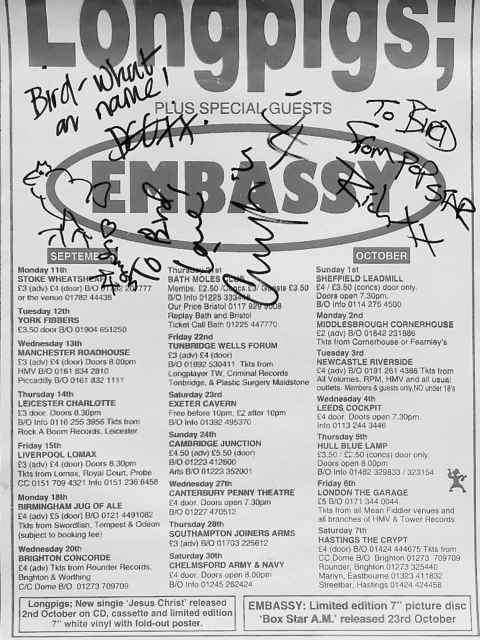 Longpigs;
Bird - what
an name!
To BIRD
From POP STAR
PLUS SPECIAL GUESTS
EMBASSY
To Bird!
SEPTEMB
Monday 11th
STOKE WHEATSHEAF
£3 (adv) £4 (door) B/O
or the venue 01782 44438
Tuesday 12th
YORK FIBBERS
£3.50 door B/O 01904 651250
Wednesday 13th
MANCHESTER ROADHOUSE
£3 (adv) £4 (door) Doors 8.00pm
HMV B/O 0161 834 2810
Piccadilly B/O 0161 832 1111
Thursday 14th
LEICESTER CHARLOTTE
£3 door. Doors 8.30pm
B/O Info 0116 255 3956 Tkts from
Rock A Boom Records, Leicester
Friday 15th
LIVERPOOL LOMAX
£3 (adv) £4 (door) Doors 8.30pm
Tkts from Lomax, Royal Court, Probe
CC 0151 709 4321 Info 0151 236 6458
Monday 18th
BIRMINGHAM JUG OF ALE
£4 (adv) £5 (door) B/O 0121 4491082
Tkts from Swordfish, Tempest & Odeon
(subject to booking fee)
Wednesday 20th
BRIGHTON CONCORDE
£4 (adv) Tkts from Rounder Records,
Brighton & Worthing
C/C Dome B/O 01273 709709
Thursday 21st
BATH MOLES CLUB
Membs. £2.50 /Concs.£3/ Guests £3.50
B/O Info 01225
Our Price Bristol 0117
Replay Bath and Bristol
Ticket Call Bath 01225 447770
Friday 22nd
TUNBRIDGE WELLS FORUM
£3 (adv) £4 (door)
B/O 01892 530411 Tkts from
Longplayer TW, Criminal Records
Tonbridge, & Plastic Surgery Maidstone
Saturday 23rd
EXETER CAVERN
Free before 10pm, £2 after 10pm
B/O Info 01392 495370
Sunday 24th
CAMBRIDGE JUNCTION
£4.50 (adv) £5.50 (door)
B/O 01223 412600
Arts B/O 01223 352001
Wednesday 27th
CANTERBURY PENNY THEATRE
£4 door. Doors 7.30pm
B/O 01227 470512
Thursday 28th
SOUTHAMPTON JOINERS ARMS
£3 (adv) B/O 01703 225612
Saturday 30th
CHELMSFORD ARMY & NAVY
£4 door. Doors 8.00pm
B/O Info 01245 262424
OCTOBER
Sunday 1st
SHEFFIELD LEADMILL
£4 / £3.50 (concs) door only.
Doors open 7.30pm.
B/O Info 0114 275 4500
Monday 2nd
MIDDLESBROUGH CORNERHOUSE
£2 (adv) B/O 01642 231886
Tkts from Cornerhouse or Fearnley's
Tuesday 3rd
NEWCASTLE RIVERSIDE
£4 (adv) B/O 0191 261 4386 Tkts from
All Volumes, RPM, HMV and all usual
outlets. Members & guests only.NO under 18's
Wednesday 4th
LEEDS COCKPIT
£4 door. Doors open 7.30pm.
Info 0113 244 3446
Thursday 5th
HULL BLUE LAMP
£3.50 / £2.50 (concs) door only
Doors open 8.00pm
B/O Info 01482 329833 / 323154
Friday 6th
LONDON THE GARAGE
£5 B/O 0171 344 0044
Tkts from all Mean Fiddler venues and
all branches of HMV & Tower Records
Saturday 7th
HASTINGS THE CRYPT
£4 (door) B/O 01424 444675 Tkts from
CC Dome B/O Brighton 01273 709709
Rounder, Brighton 01273 325440
Martyn, Eastbourne 01323 411832
Streetbar, Hastings 01424 424458
Longpigs; New single 'Jesus Christ' released
2nd October on CD, cassette and limited edition
7" white vinyl with fold-out poster.
EMBASSY: Limited edition 7" picture disc
'Box Star A.M.' released 23rd October